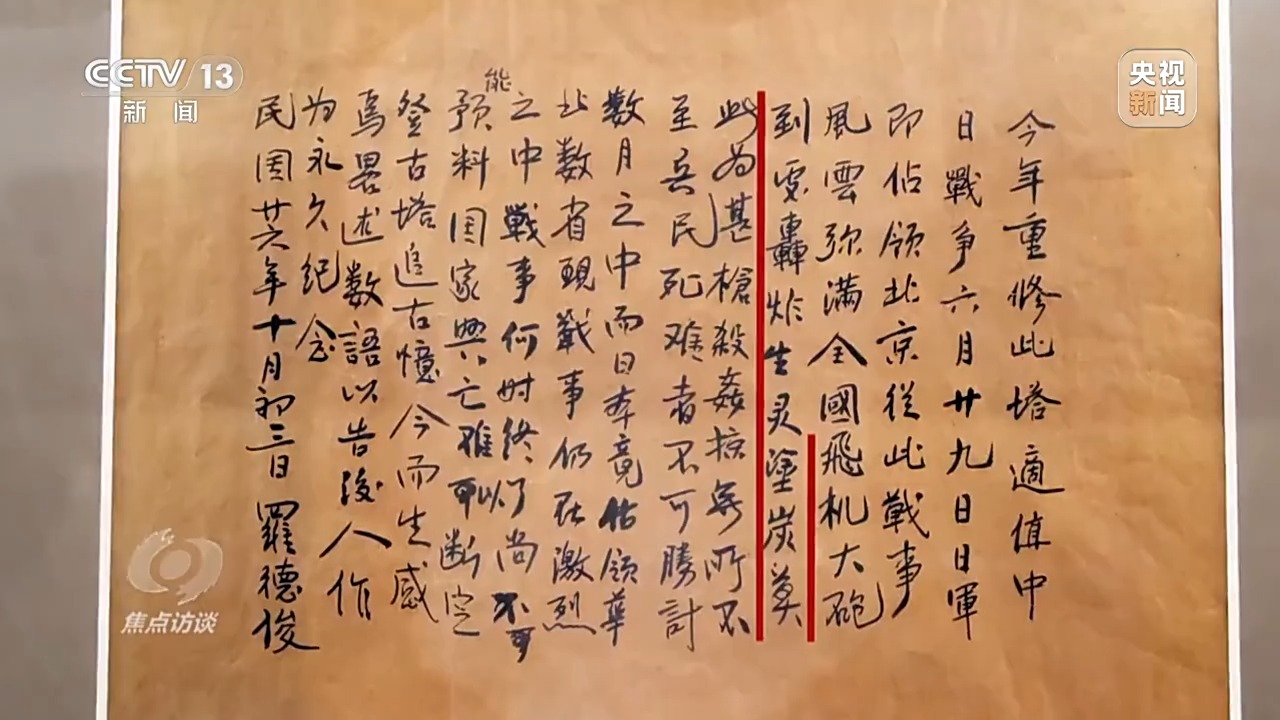 CCTV 13
新闻
央视
新闻
今年重修此塔適值中
日戰争六月廿九日日軍
即佔領北京從此戰事
風雲弥满全國飛机大砲
到处轟炸生灵塗炭莫
此为甚槍殺姦掠無所不
至兵民死难者不可勝計
数月之中而日本竟佔領華
北数省現戰事仍在激烈
之中戰事何时終了尚不可
能预料国家興亡难以断定
登古塔追古憶今而生感
焉畧述数語以告後人作
为永久纪念
民国廿六年十月初三日羅德俊
焦点访谈